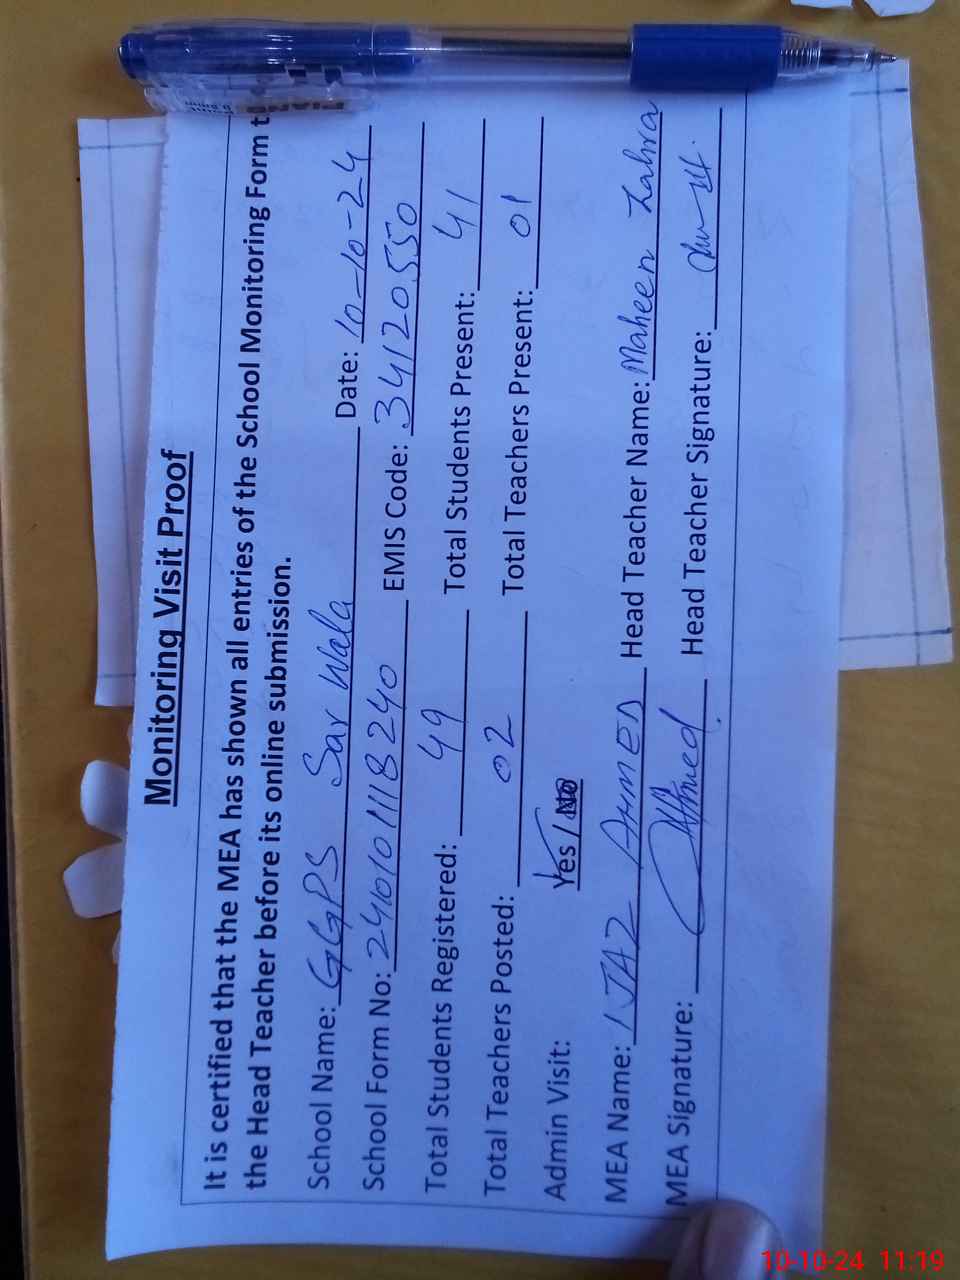 Monitoring Visit Proof
It is certified that the MEA has shown all entries of the School Monitoring Form t
the Head Teacher before its online submission.
School Name: GGPS Sar Wala Date: 10-10-24
School Form No: 24101011118240 EMIS Code: 34120550
Total Students Registered: 49 Total Students Present: 41
Total Teachers Posted: 02 Total Teachers Present: 01
Admin Visit: Yes / No
MEA Name: IJAZ AHMED Head Teacher Name: Maheen Zahra
MEA Signature: Ahmed Head Teacher Signature:
PIANO
10-10-24 11:19